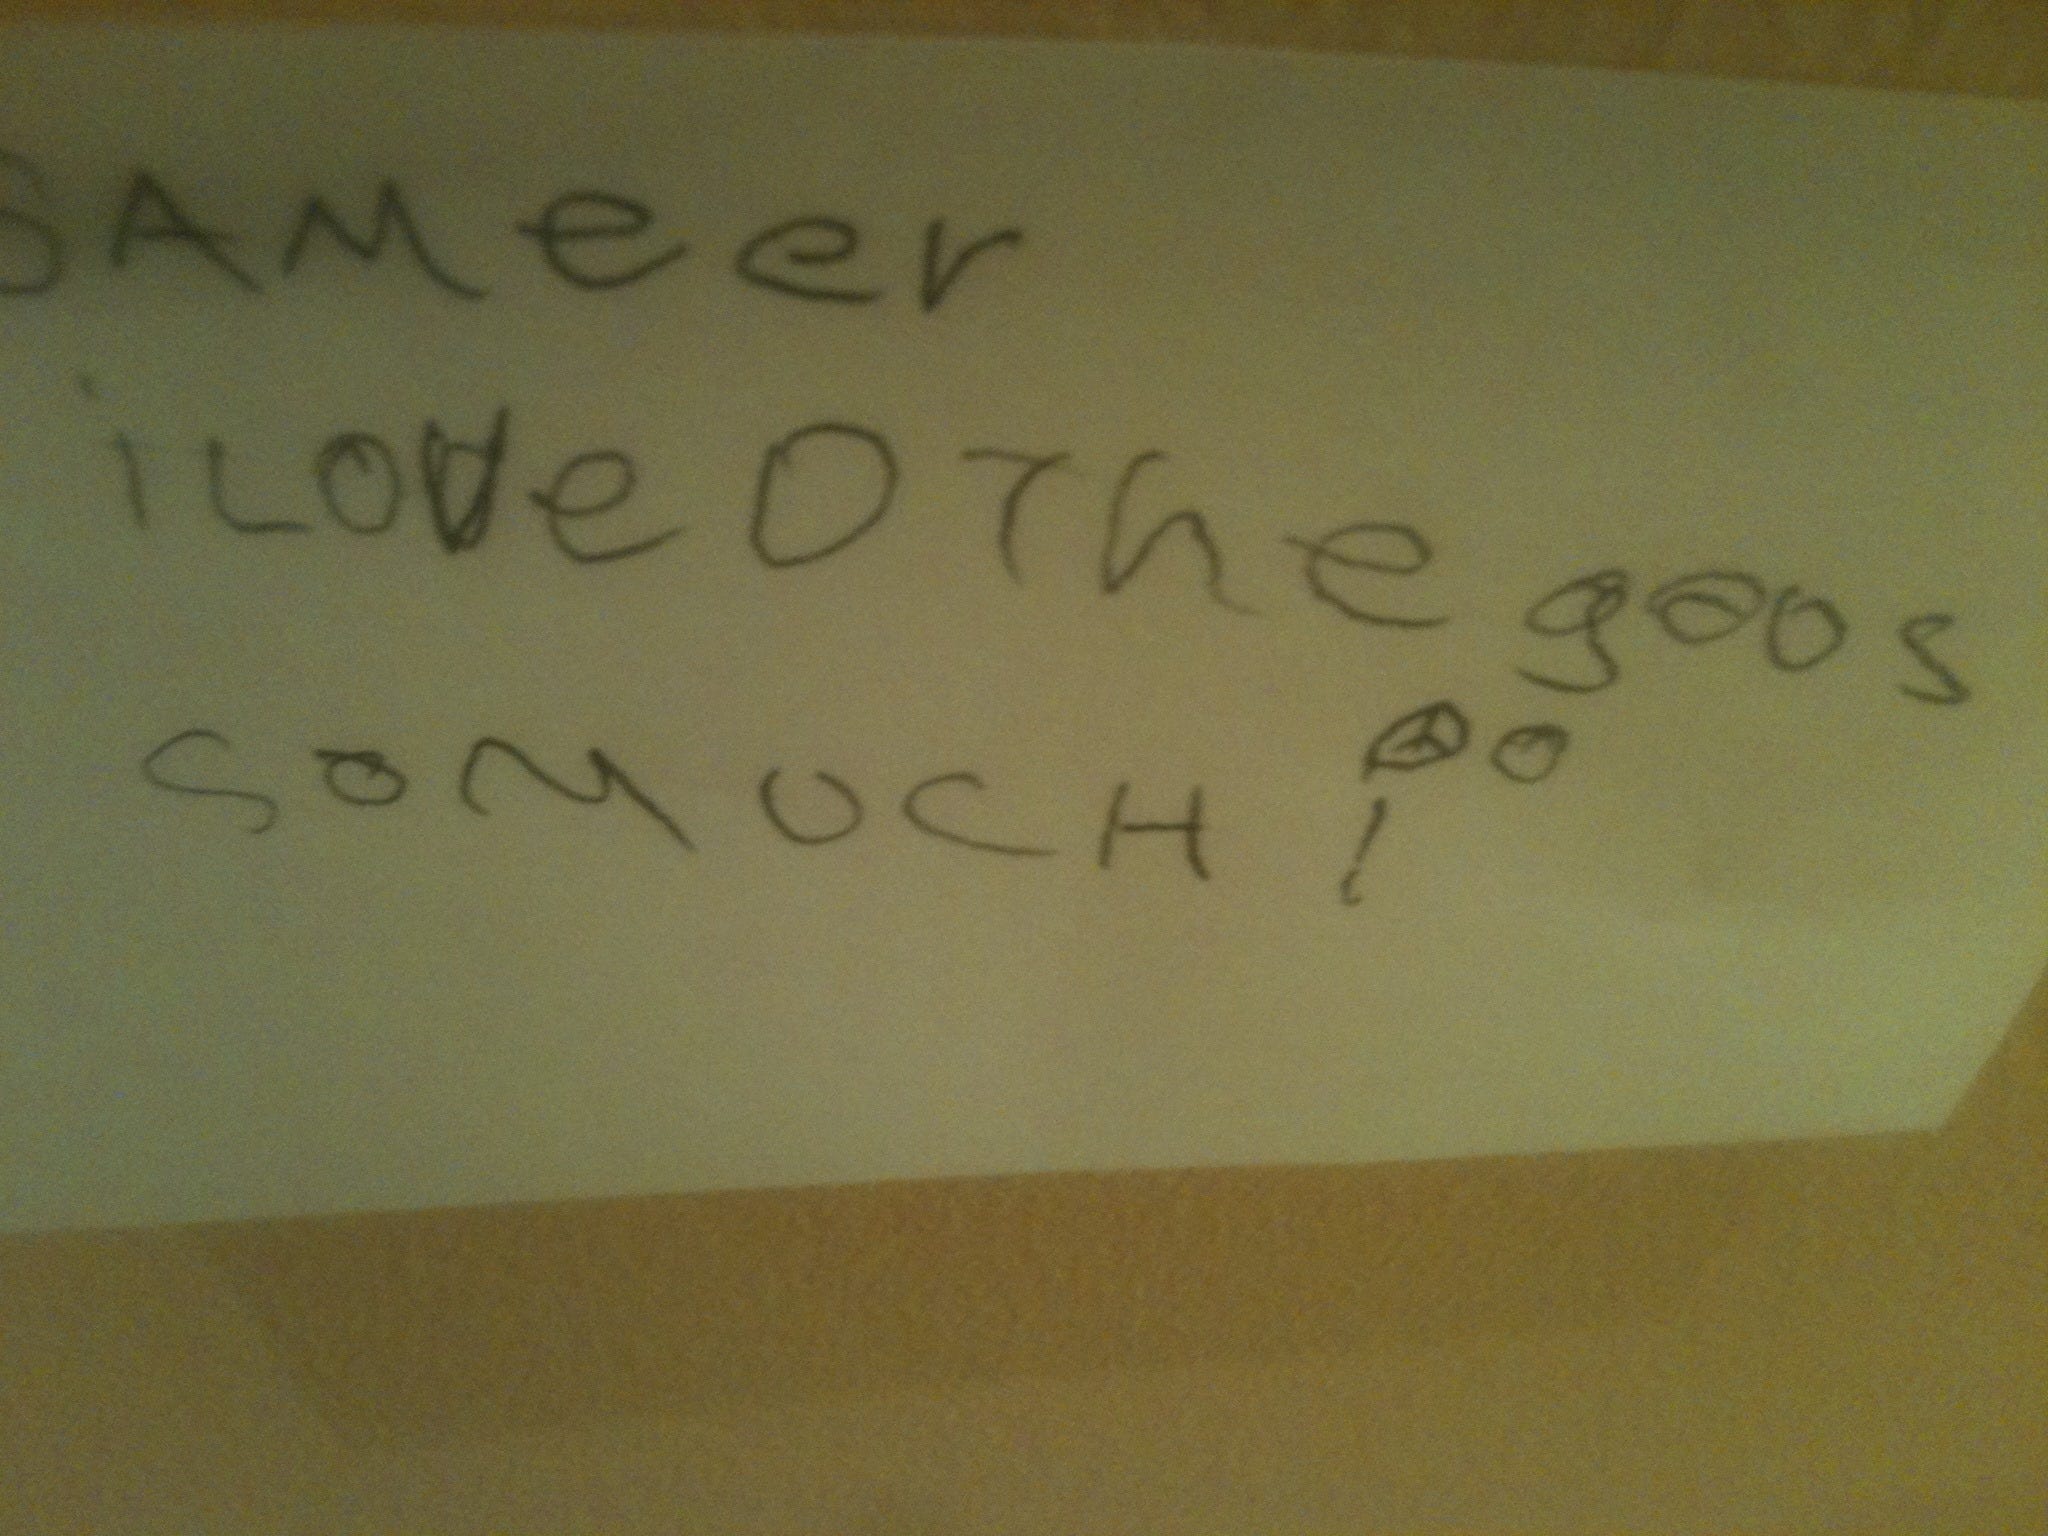 SAMeer
i LOVeD The goos
SO MUCH !